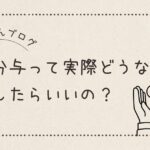 んブログ
分与って実際どうな
したらいいの？